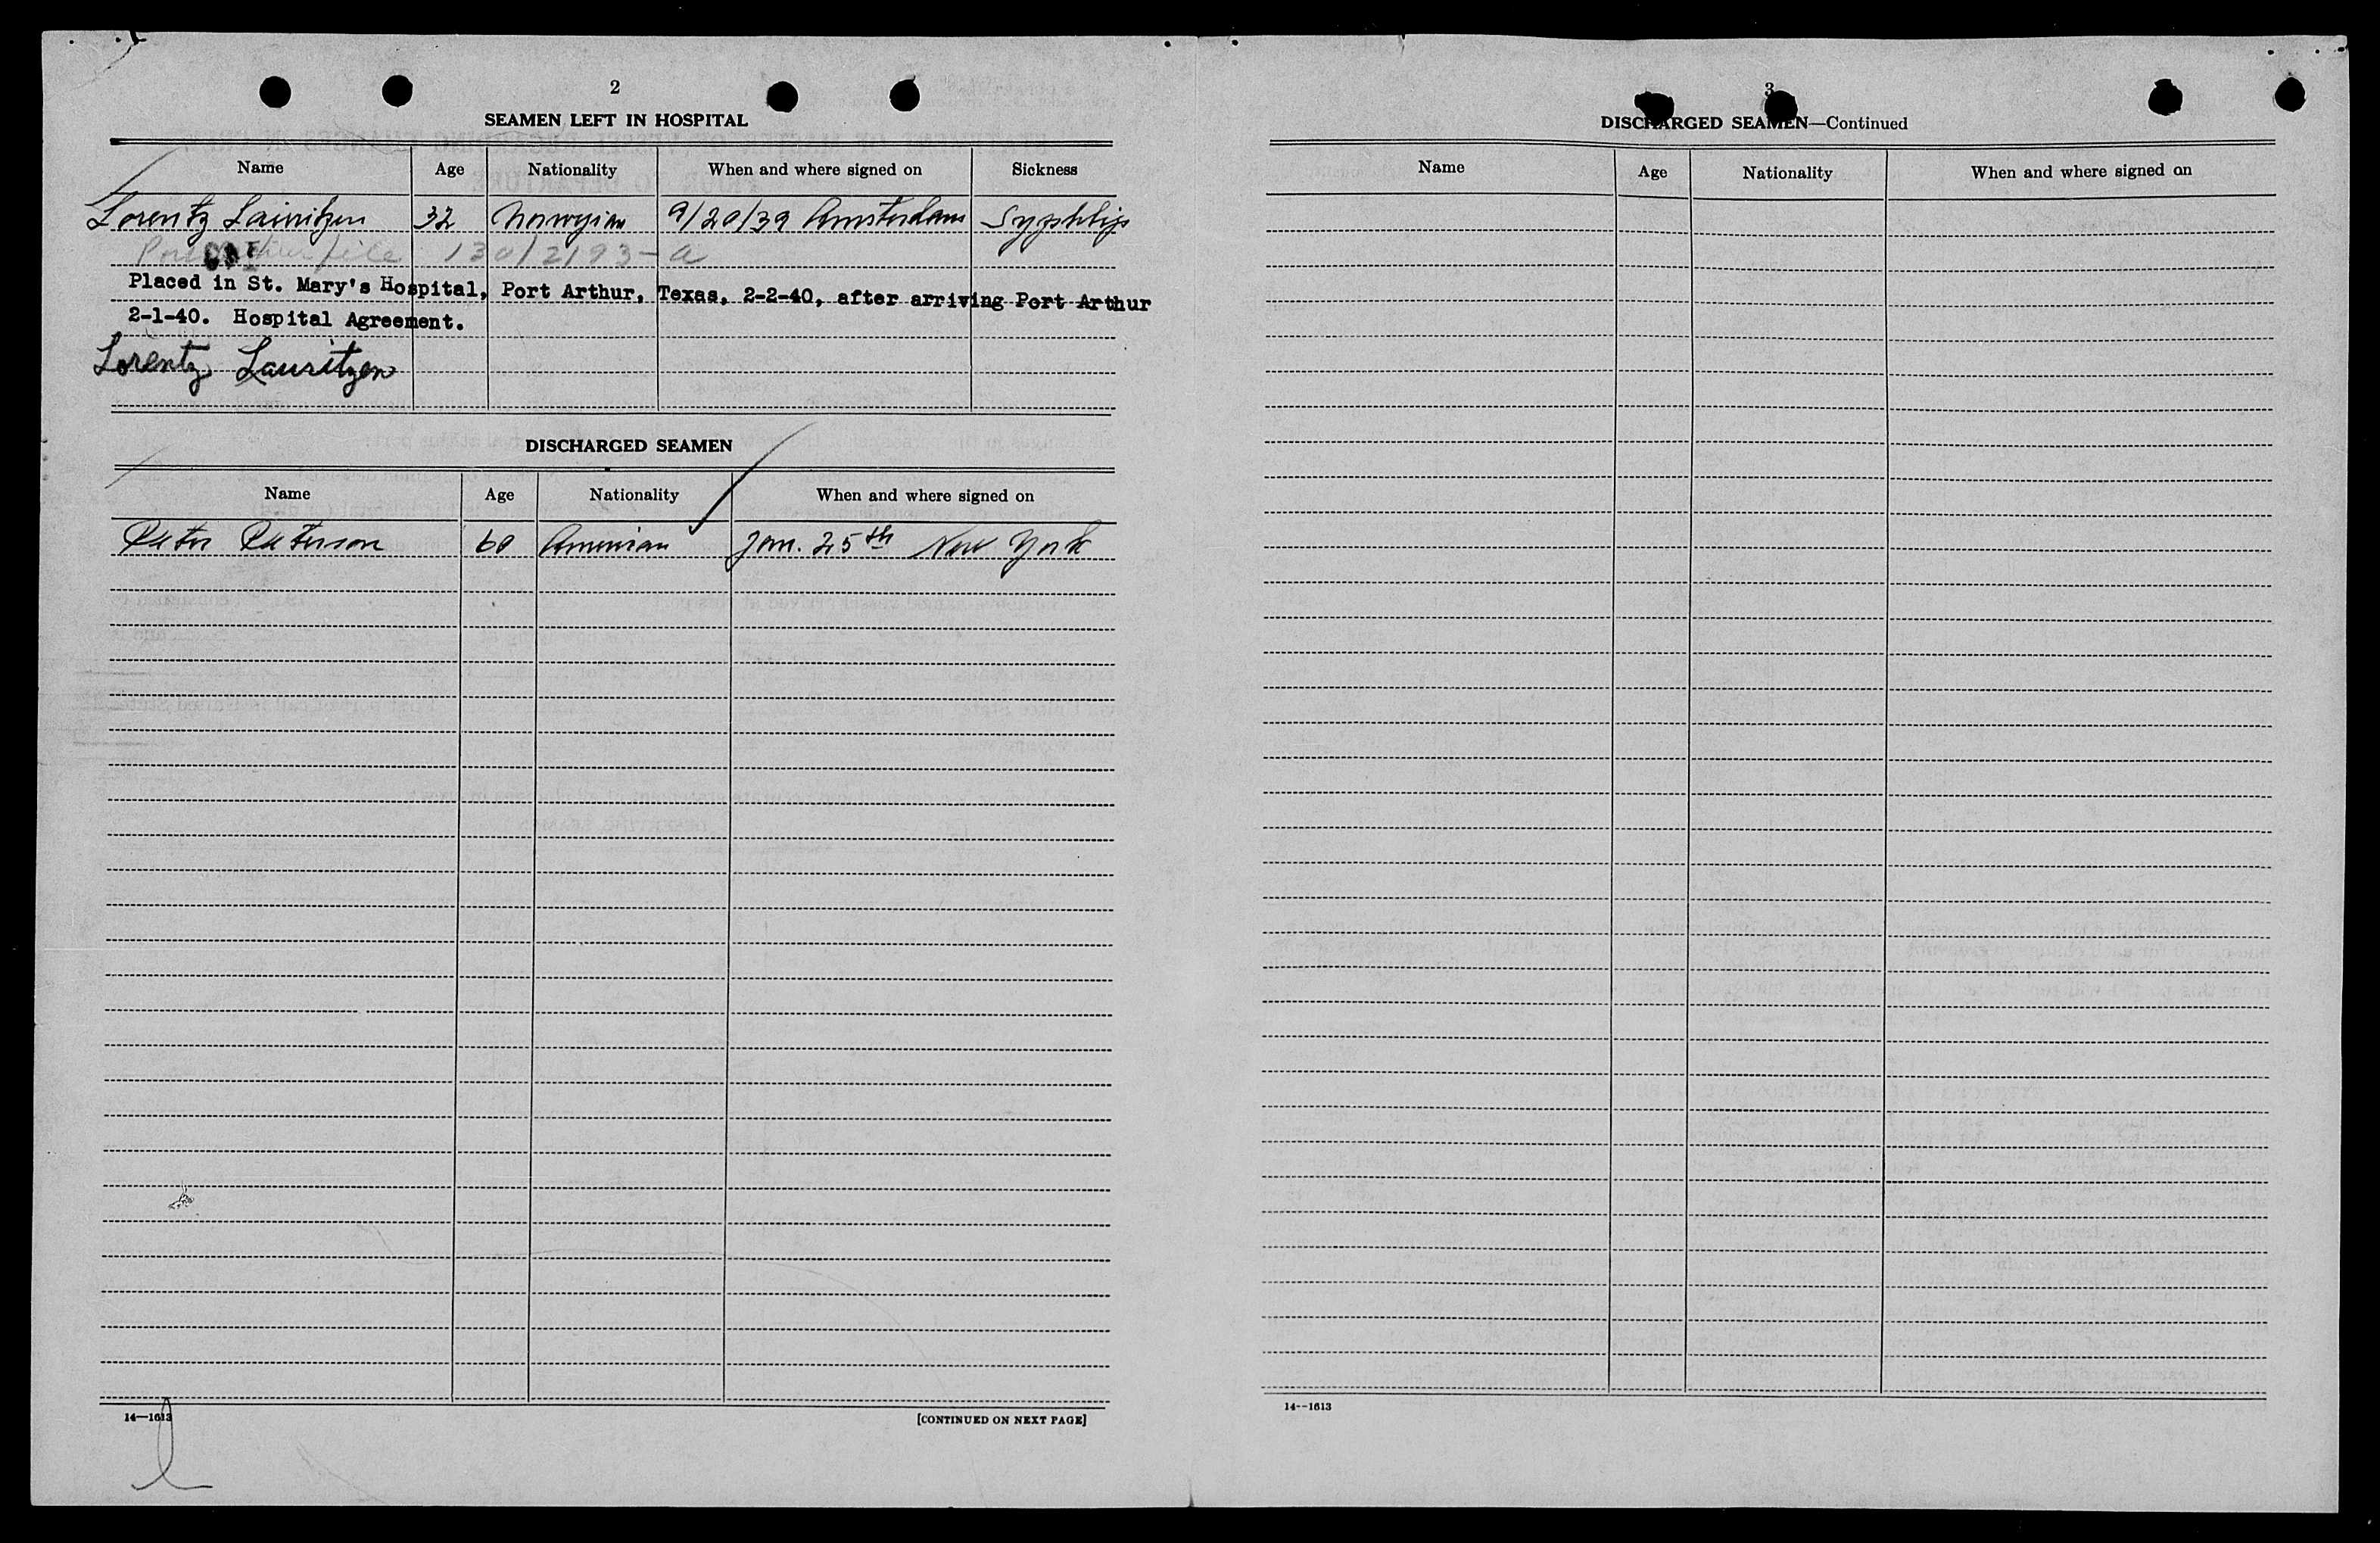 2
SEAMEN LEFT IN HOSPITAL
Name Age Nationality When and where signed on Sickness
Lorentz Lauritzen 32 Norwegian 9/20/39 Amsterdam Syphilis
file 130/2193-a
Placed in St. Mary's Hospital, Port Arthur, Texas, 2-2-40, after arriving Port Arthur
2-1-40. Hospital Agreement.
Lorentz Lauritzen
DISCHARGED SEAMEN
Name Age Nationality When and where signed on
Peter Peterson 60 American Jan. 25th New York
14—1613 [CONTINUED ON NEXT PAGE]
3
DISCHARGED SEAMEN—Continued
Name Age Nationality When and where signed on
14--1613